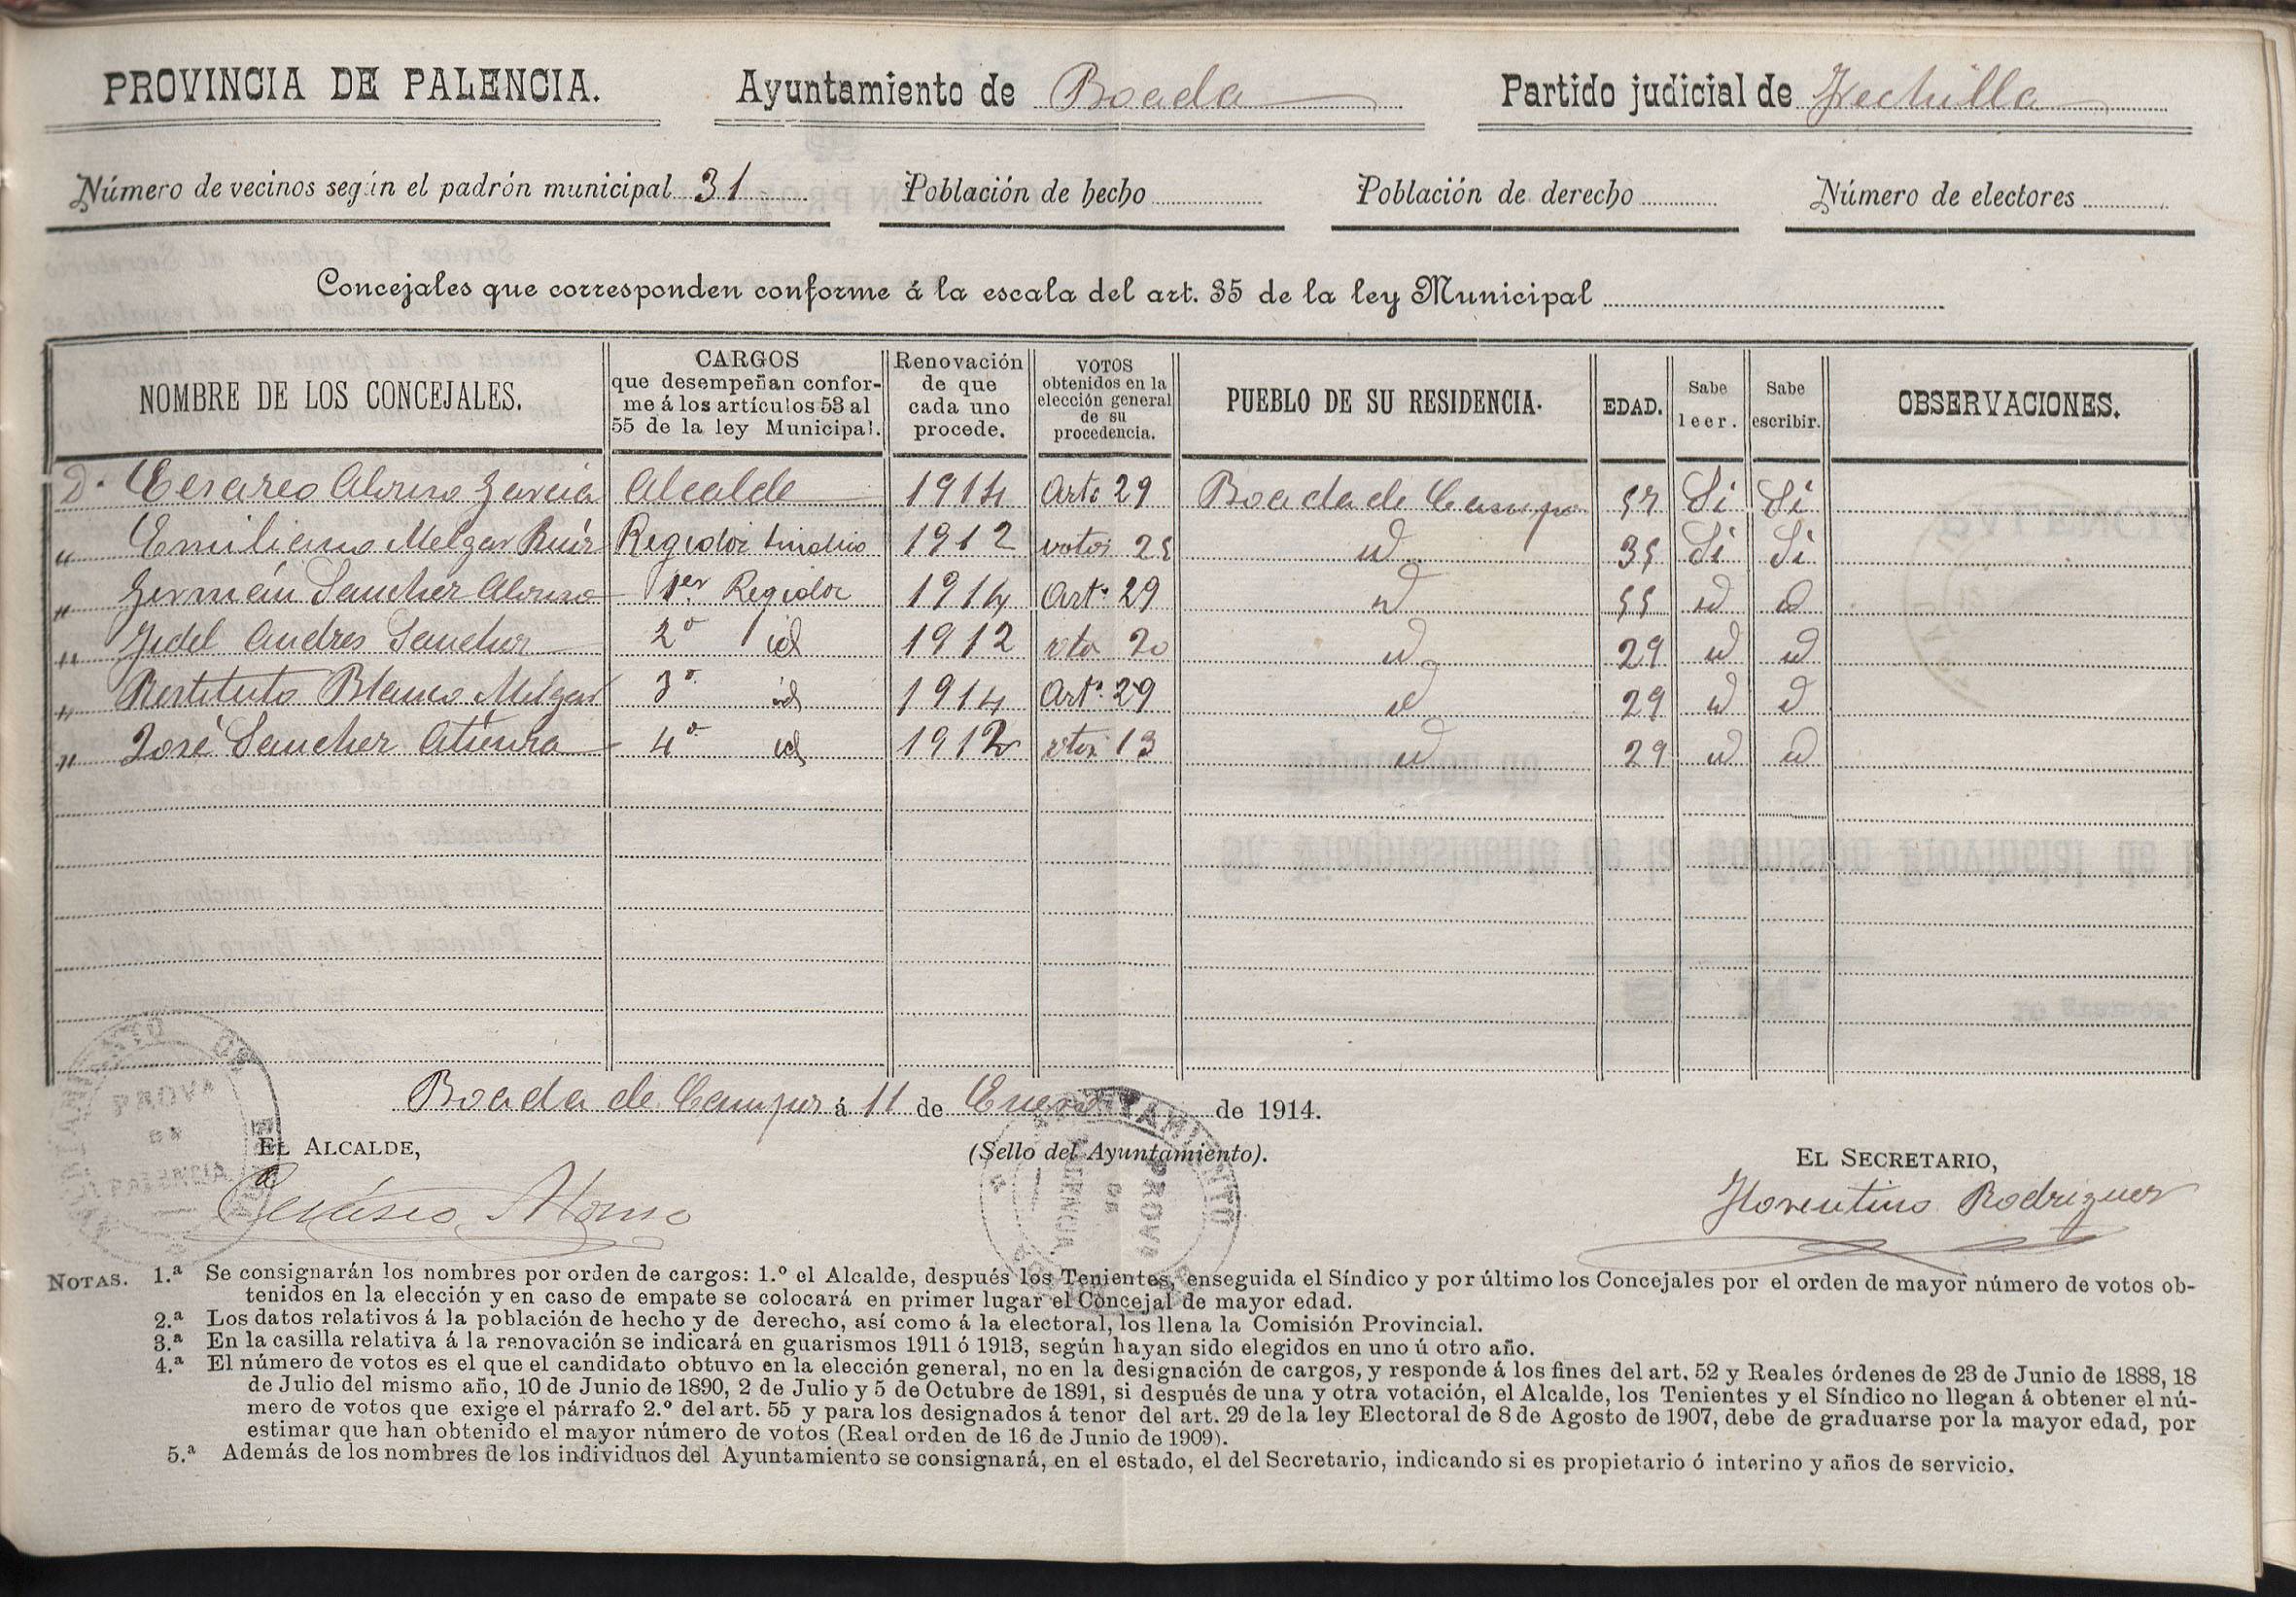 PROVINCIA DE PALENCIA. Ayuntamiento de Boada Partido judicial de Frechilla
Número de vecinos según el padrón municipal 31 Población de hecho Población de derecho Número de electores
Concejales que corresponden conforme á la escala del art. 35 de la ley Municipal
NOMBRE DE LOS CONCEJALES. CARGOS que desempeñan conforme á los artículos 53 al 55 de la ley Municipal. Renovación de que cada uno procede. VOTOS obtenidos en la elección general de su procedencia. PUEBLO DE SU RESIDENCIA. EDAD. Sabe leer. Sabe escribir. OBSERVACIONES.
D. Cesareo Alonso Garcia Alcalde 1914 Artº 29 Boada de Campos 57 Si Si
" Emiliano Melgar Ruiz Regidor sindico 1912 votos 25 id 35 Si Si
" Germán Sanchez Alonso 1er Regidor 1914 Artº 29 id 55 id id
" Fidel Andres Sanchez 2º id 1912 vtos 20 id 29 id id
" Restituto Blanco Melgar 3º id 1914 Artº 29 id 29 id id
" José Sanchez 4º id 1912 vtos 13 id 29 id id
Boada de Campos á 11 de Enero de 1914.
EL ALCALDE, (Sello del Ayuntamiento). EL SECRETARIO,
Alonso Florentino Rodriguez
NOTAS. 1.ª Se consignarán los nombres por orden de cargos: 1.º el Alcalde, después los Tenientes, enseguida el Síndico y por último los Concejales por el orden de mayor número de votos ob-
tenidos en la elección y en caso de empate se colocará en primer lugar el Concejal de mayor edad.
2.ª Los datos relativos á la población de hecho y de derecho, así como á la electoral, los llena la Comisión Provincial.
3.ª En la casilla relativa á la renovación se indicará en guarismos 1911 ó 1913, según hayan sido elegidos en uno ú otro año.
4.ª El número de votos es el que el candidato obtuvo en la elección general, no en la designación de cargos, y responde á los fines del art. 52 y Reales órdenes de 23 de Junio de 1888, 18
de Julio del mismo año, 10 de Junio de 1890, 2 de Julio y 5 de Octubre de 1891, si después de una y otra votación, el Alcalde, los Tenientes y el Síndico no llegan á obtener el nú-
mero de votos que exige el párrafo 2.º del art. 55 y para los designados á tenor del art. 29 de la ley Electoral de 8 de Agosto de 1907, debe de graduarse por la mayor edad, por
estimar que han obtenido el mayor número de votos (Real orden de 16 de Junio de 1909).
5.ª Además de los nombres de los individuos del Ayuntamiento se consignará, en el estado, el del Secretario, indicando si es propietario ó interino y años de servicio.